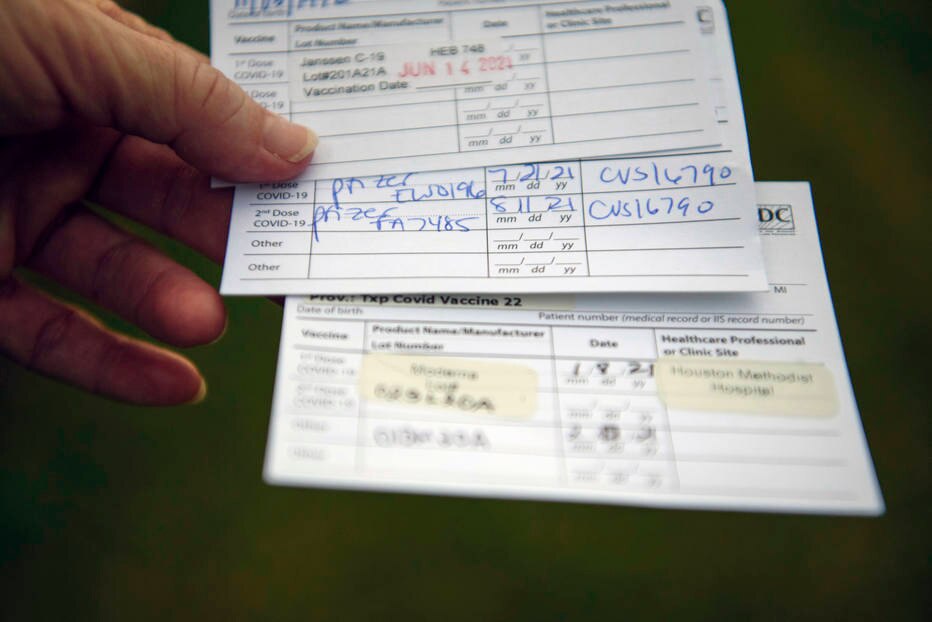 Product Name/Manufacturer
Date
Healthcare Professional
or Clinic Site
Vaccine
Lot Number
1st Dose
COVID-19
Janssen C-19
HEB 748
yy
Lot#201A21A
JUN 14 2021
Vaccination Date:
Dose
COVID-19
mm dd yy
mm dd yy
1st Dose
COVID-19
pfizer
EW0196
7/21/21
mm dd yy
CVS16790
2nd Dose
COVID-19
pfizer
FA7485
8/11/21
mm dd yy
CVS16790
Other
mm dd yy
Other
mm dd yy
DC
MI
Prov.: Txp Covid Vaccine 22
Date of birth
Patient number (medical record or IIS record number)
Vaccine
Product Name/Manufacturer
Lot Number
Date
Healthcare Professional
or Clinic Site
1st Dose
COVID-19
Moderna
1 8 21
mm dd yy
Houston Methodist
Hospital
COVID-19
mm dd yy